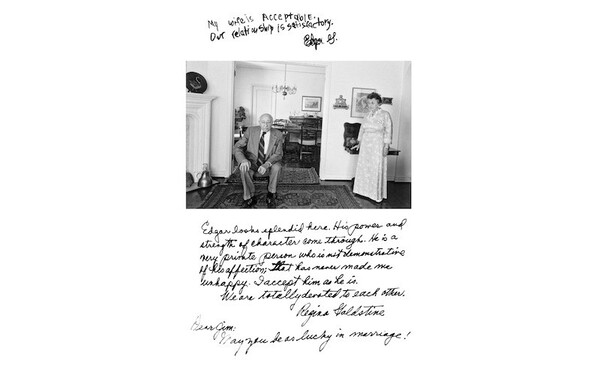 My wife is Acceptable.
Our relationship is satisfactory.
Edgar G.
Edgar looks splendid here. His power and
strength of character come through. He is a
very private person who is not demonstrative
of his affection; that has never made me
unhappy. I accept him as he is.
We are totally devoted to each other.
Regina Goldstine
Dear Jim:
May you be as lucky in marriage!